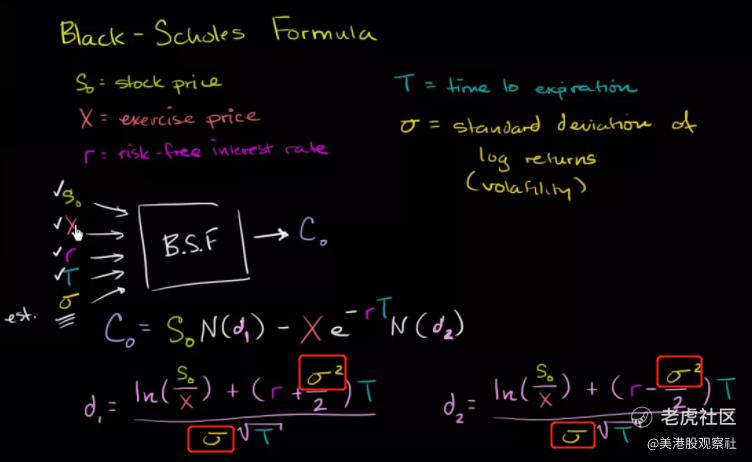 Black-Scholes Formula
S₀ = stock price
X = exercise price
r = risk-free interest rate
T = time to expiration
σ = standard deviation of
log returns
(volatility)
✓S₀
✓X
✓r
✓T
σ
est.
B.S.F
C₀
C₀ = S₀N(d₁) - Xe^-rT N(d₂)
d₁ = ln(S₀/X) + (r + σ²/2)T / σ√T
d₂ = ln(S₀/X) + (r - σ²/2)T / σ√T
老虎社区
@美港股观察社